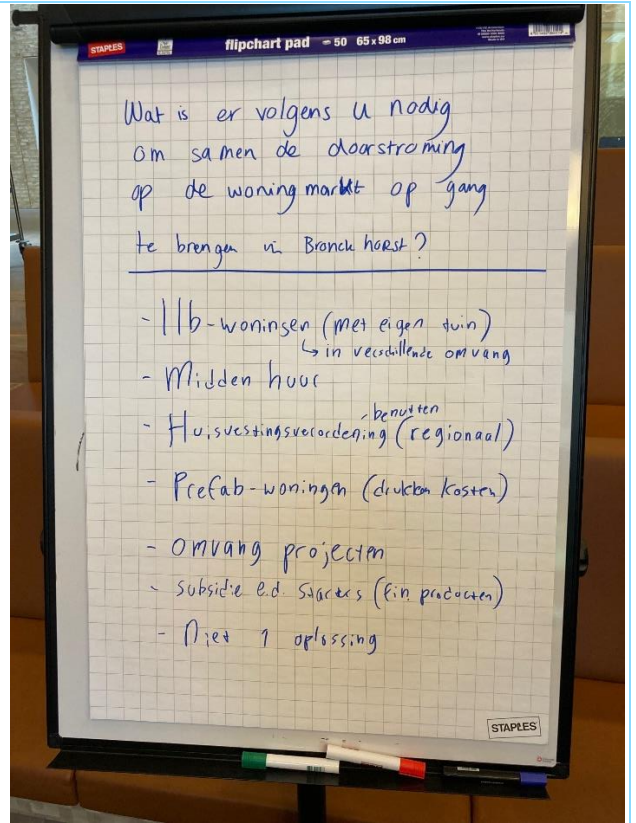 STAPLES
flipchart pad 50 65 x 98 cm
Wat is er volgens u nodig
om samen de doorstroming
op de woningmarkt op gang
te brengen in Bronckhorst?
- llb-woningen (met eigen tuin)
↳ in verschillende omvang
- Midden huur
- benutten
- Huisvestingsverordening (regionaal)
- Prefab-woningen (drukken kosten)
- omvang projecten
- subsidie e.d. starters (fin. producten)
- Niet 1 oplossing
STAPLES